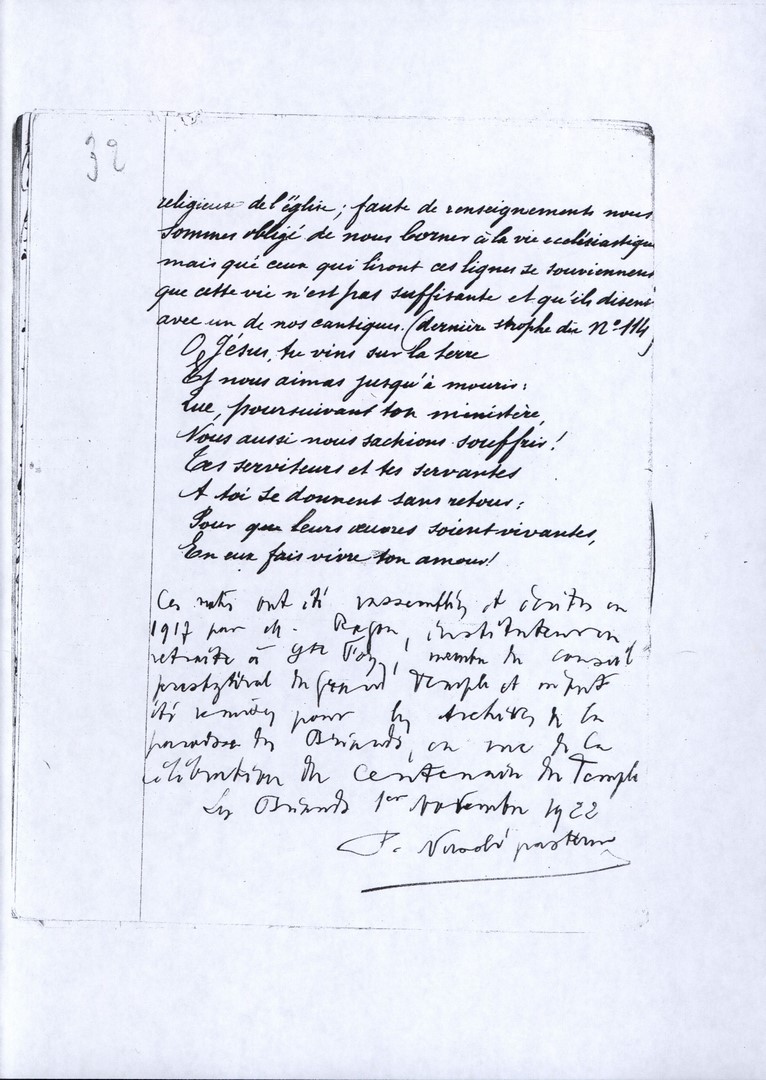 32
religieuse de l'église; faute de renseignements nous
sommes obligé de nous borner à la vie ecclésiastique
mais que ceux qui liront ces lignes se souviennent
que cette vie n'est pas suffisante et qu'ils disent
avec un de nos cantiques. (dernière strophe du N° 114)
O Jésus, tu vins sur la terre
Et nous aimas jusqu'à mourir:
Que, poursuivant ton ministère,
Nous aussi nous sachions souffrir!
Tes serviteurs et tes servantes
A toi se donnent sans retour;
Pour que leurs œuvres soient vivantes,
En eux fais vivre ton amour!
Ces notes ont été rassemblées et écrites en
1917 par M. Ragon, instituteur en
retraite à Ste Foy, membre du conseil
presbytéral du Grand Temple et m'ont
été remises pour les Archives de la
paroisse des Briands, en vue de la
célébration du Centenaire du Temple
Les Briands 1er Novembre 1922
P. pasteur